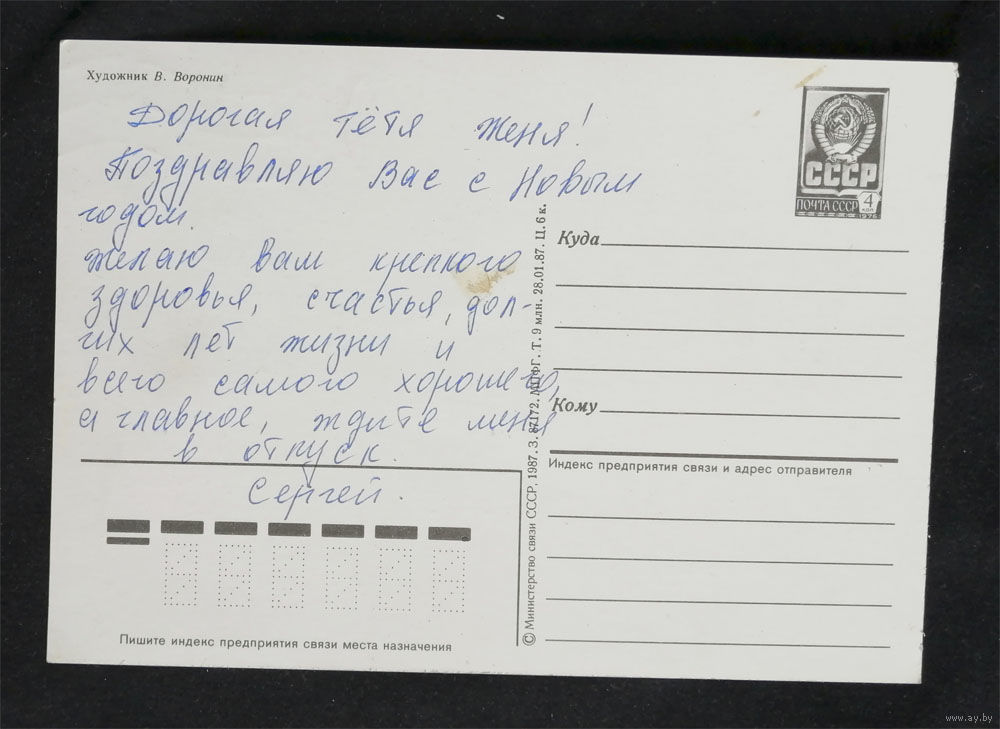 Художник В. Воронин
Дорогая тётя Женя!
Поздравляю Вас с Новым
годом.
Желаю вам крепкого
здоровья, счастья, дол-
гих лет жизни и
всего самого хорошего,
а главное, ждите меня
в отпуск.
Сергей.
Пишите индекс предприятия связи места назначения
© Министерство связи СССР, 1987. З. 87172. МПФГ. Т. 9 млн. 28.01.87. Ц. 6 к.
СССР
ПОЧТА СССР 4
КОП
1976
Куда
Кому
Индекс предприятия связи и адрес отправителя
www.ay.by